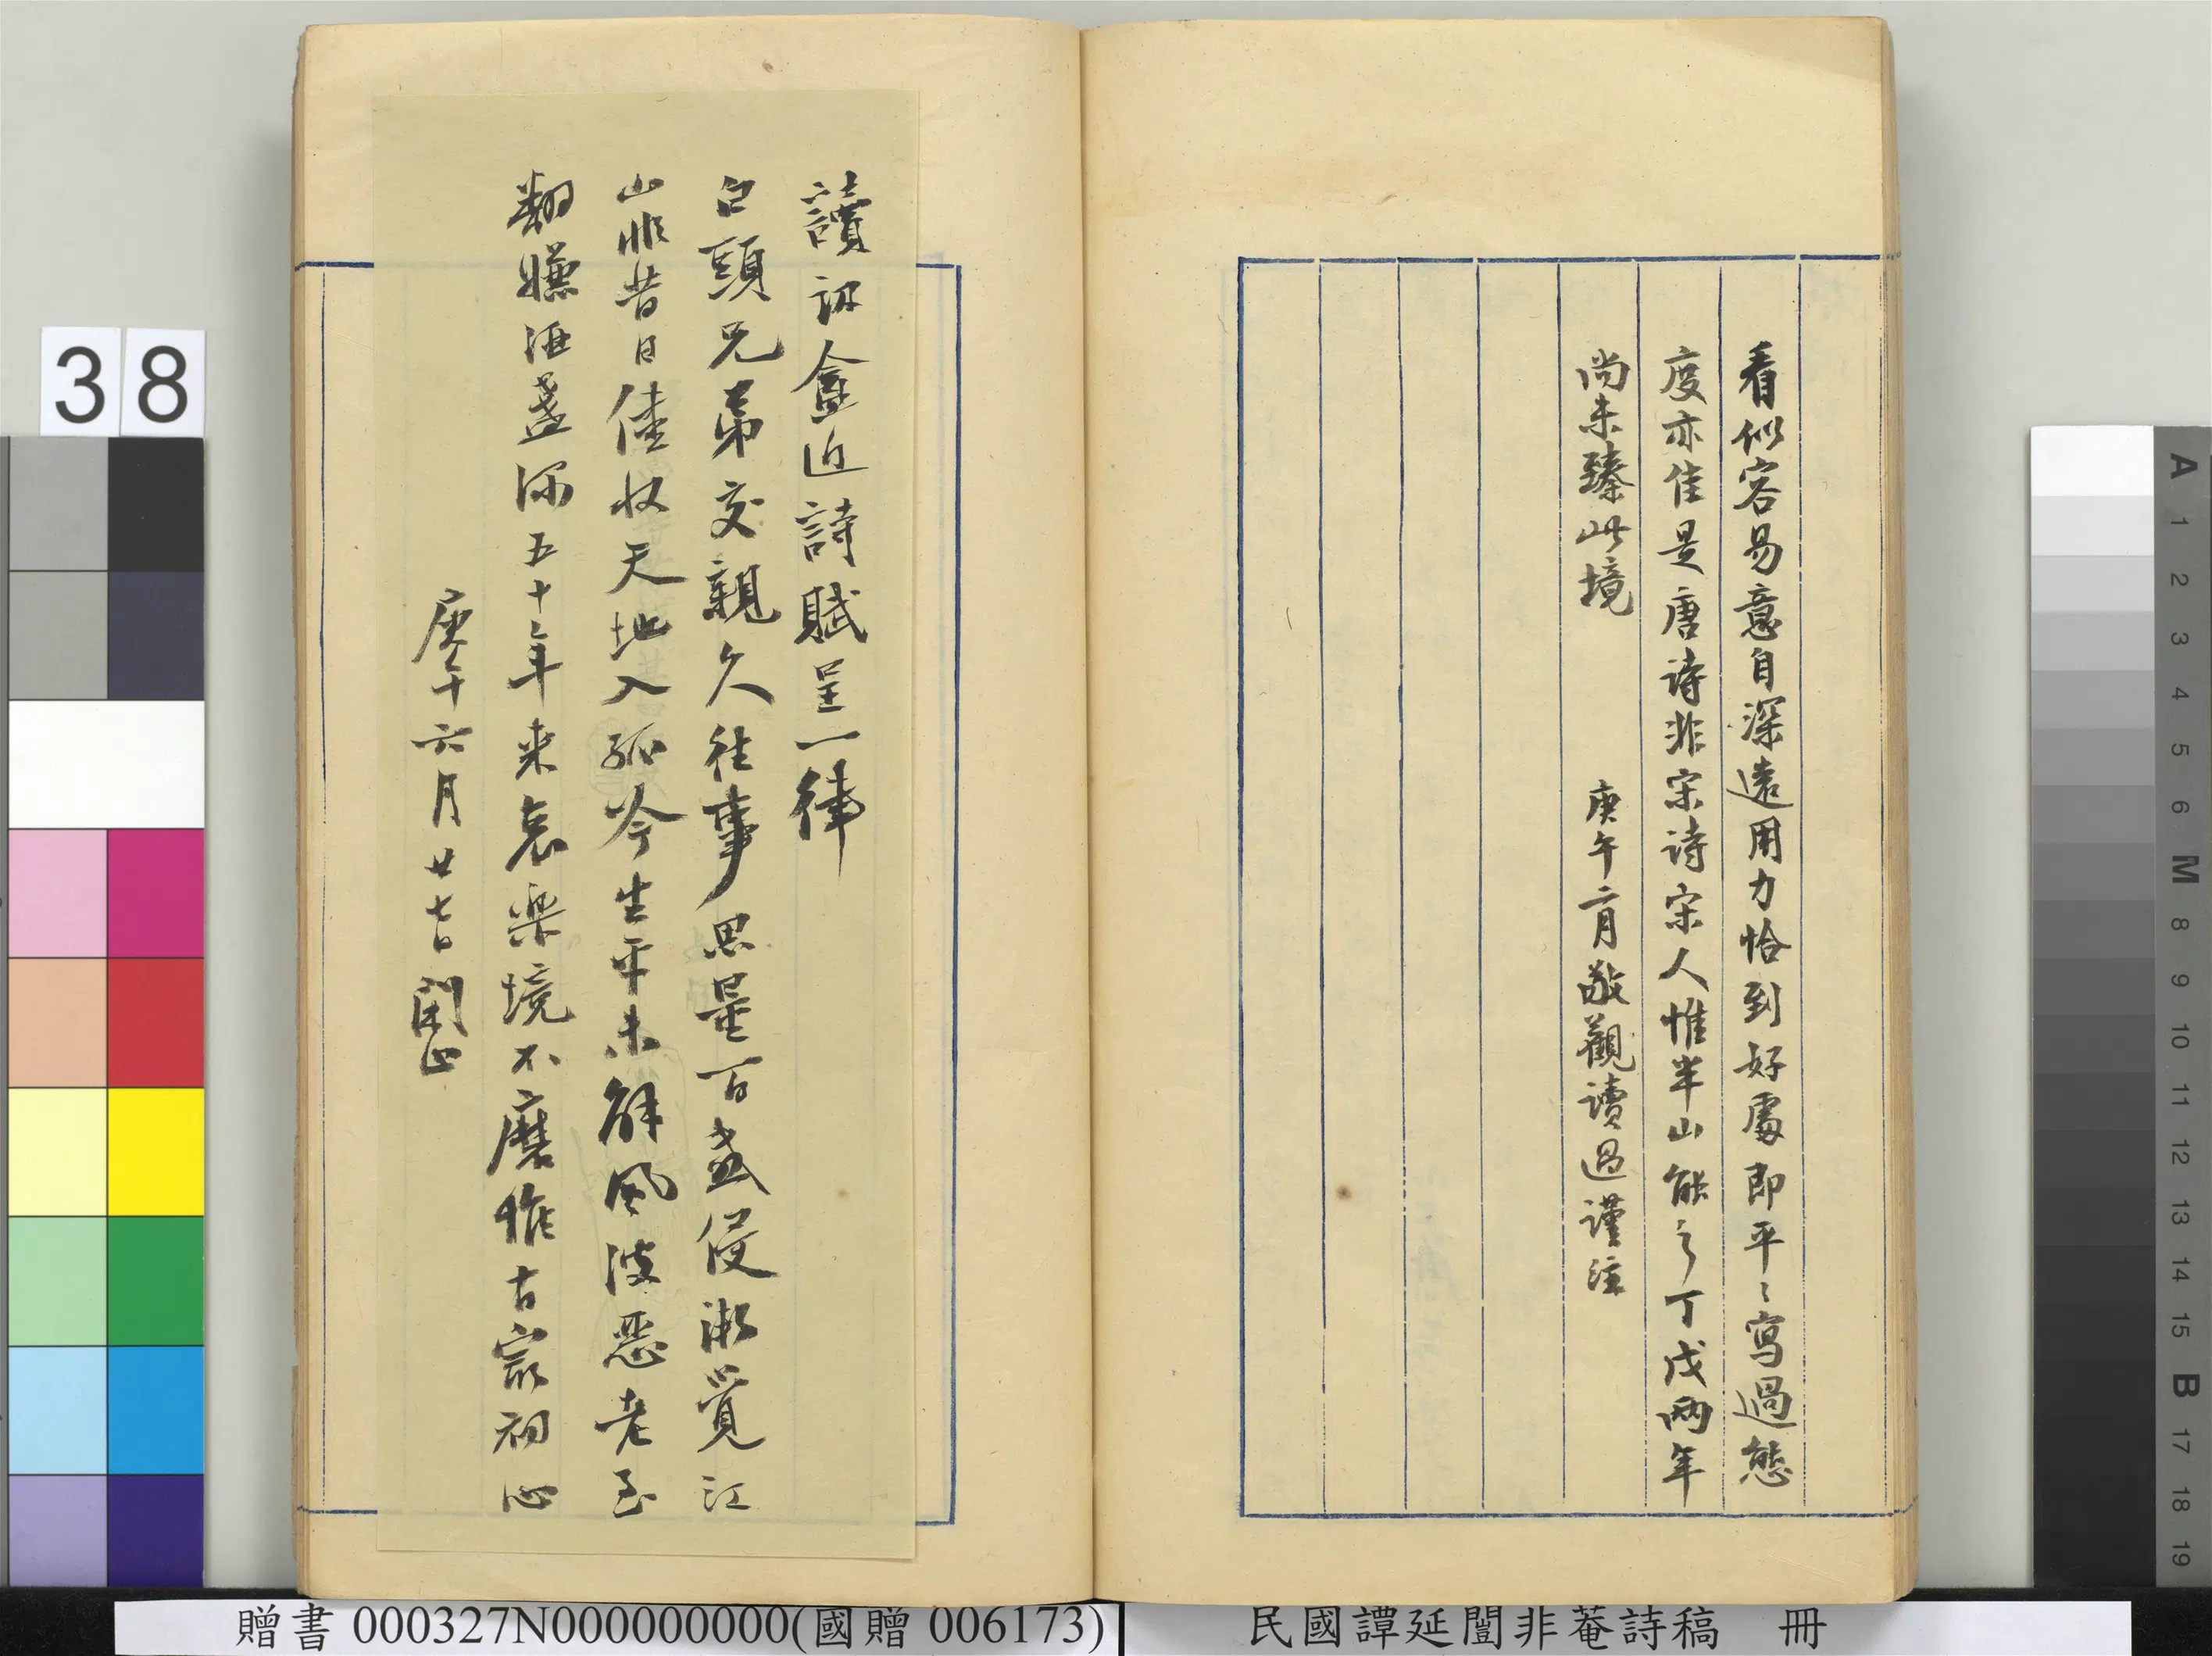 看似容易意自深遠用力恰到好處即平〻寫過態
度亦佳是唐詩非宋詩宋人惟半山能之丁戊兩年
尚未臻此境
庚午六月敬觀讀過謹注
讀訒盦近詩賦呈一律
白頭兄弟交親久往事思量百盞侵漸覺江
山非昔日偉收天地入孤吟生平未解風波惡老至
翻嫌酒盞深五十年來哀樂境不磨惟古寂初心
庚午六月廿七日閑止
38
A 1 2 3 4 5 6 M 8 9 10 11 12 13 14 15 B 17 18 19
贈書 000327N000000000(國贈 006173)
民國譚延闓非菴詩稿 冊